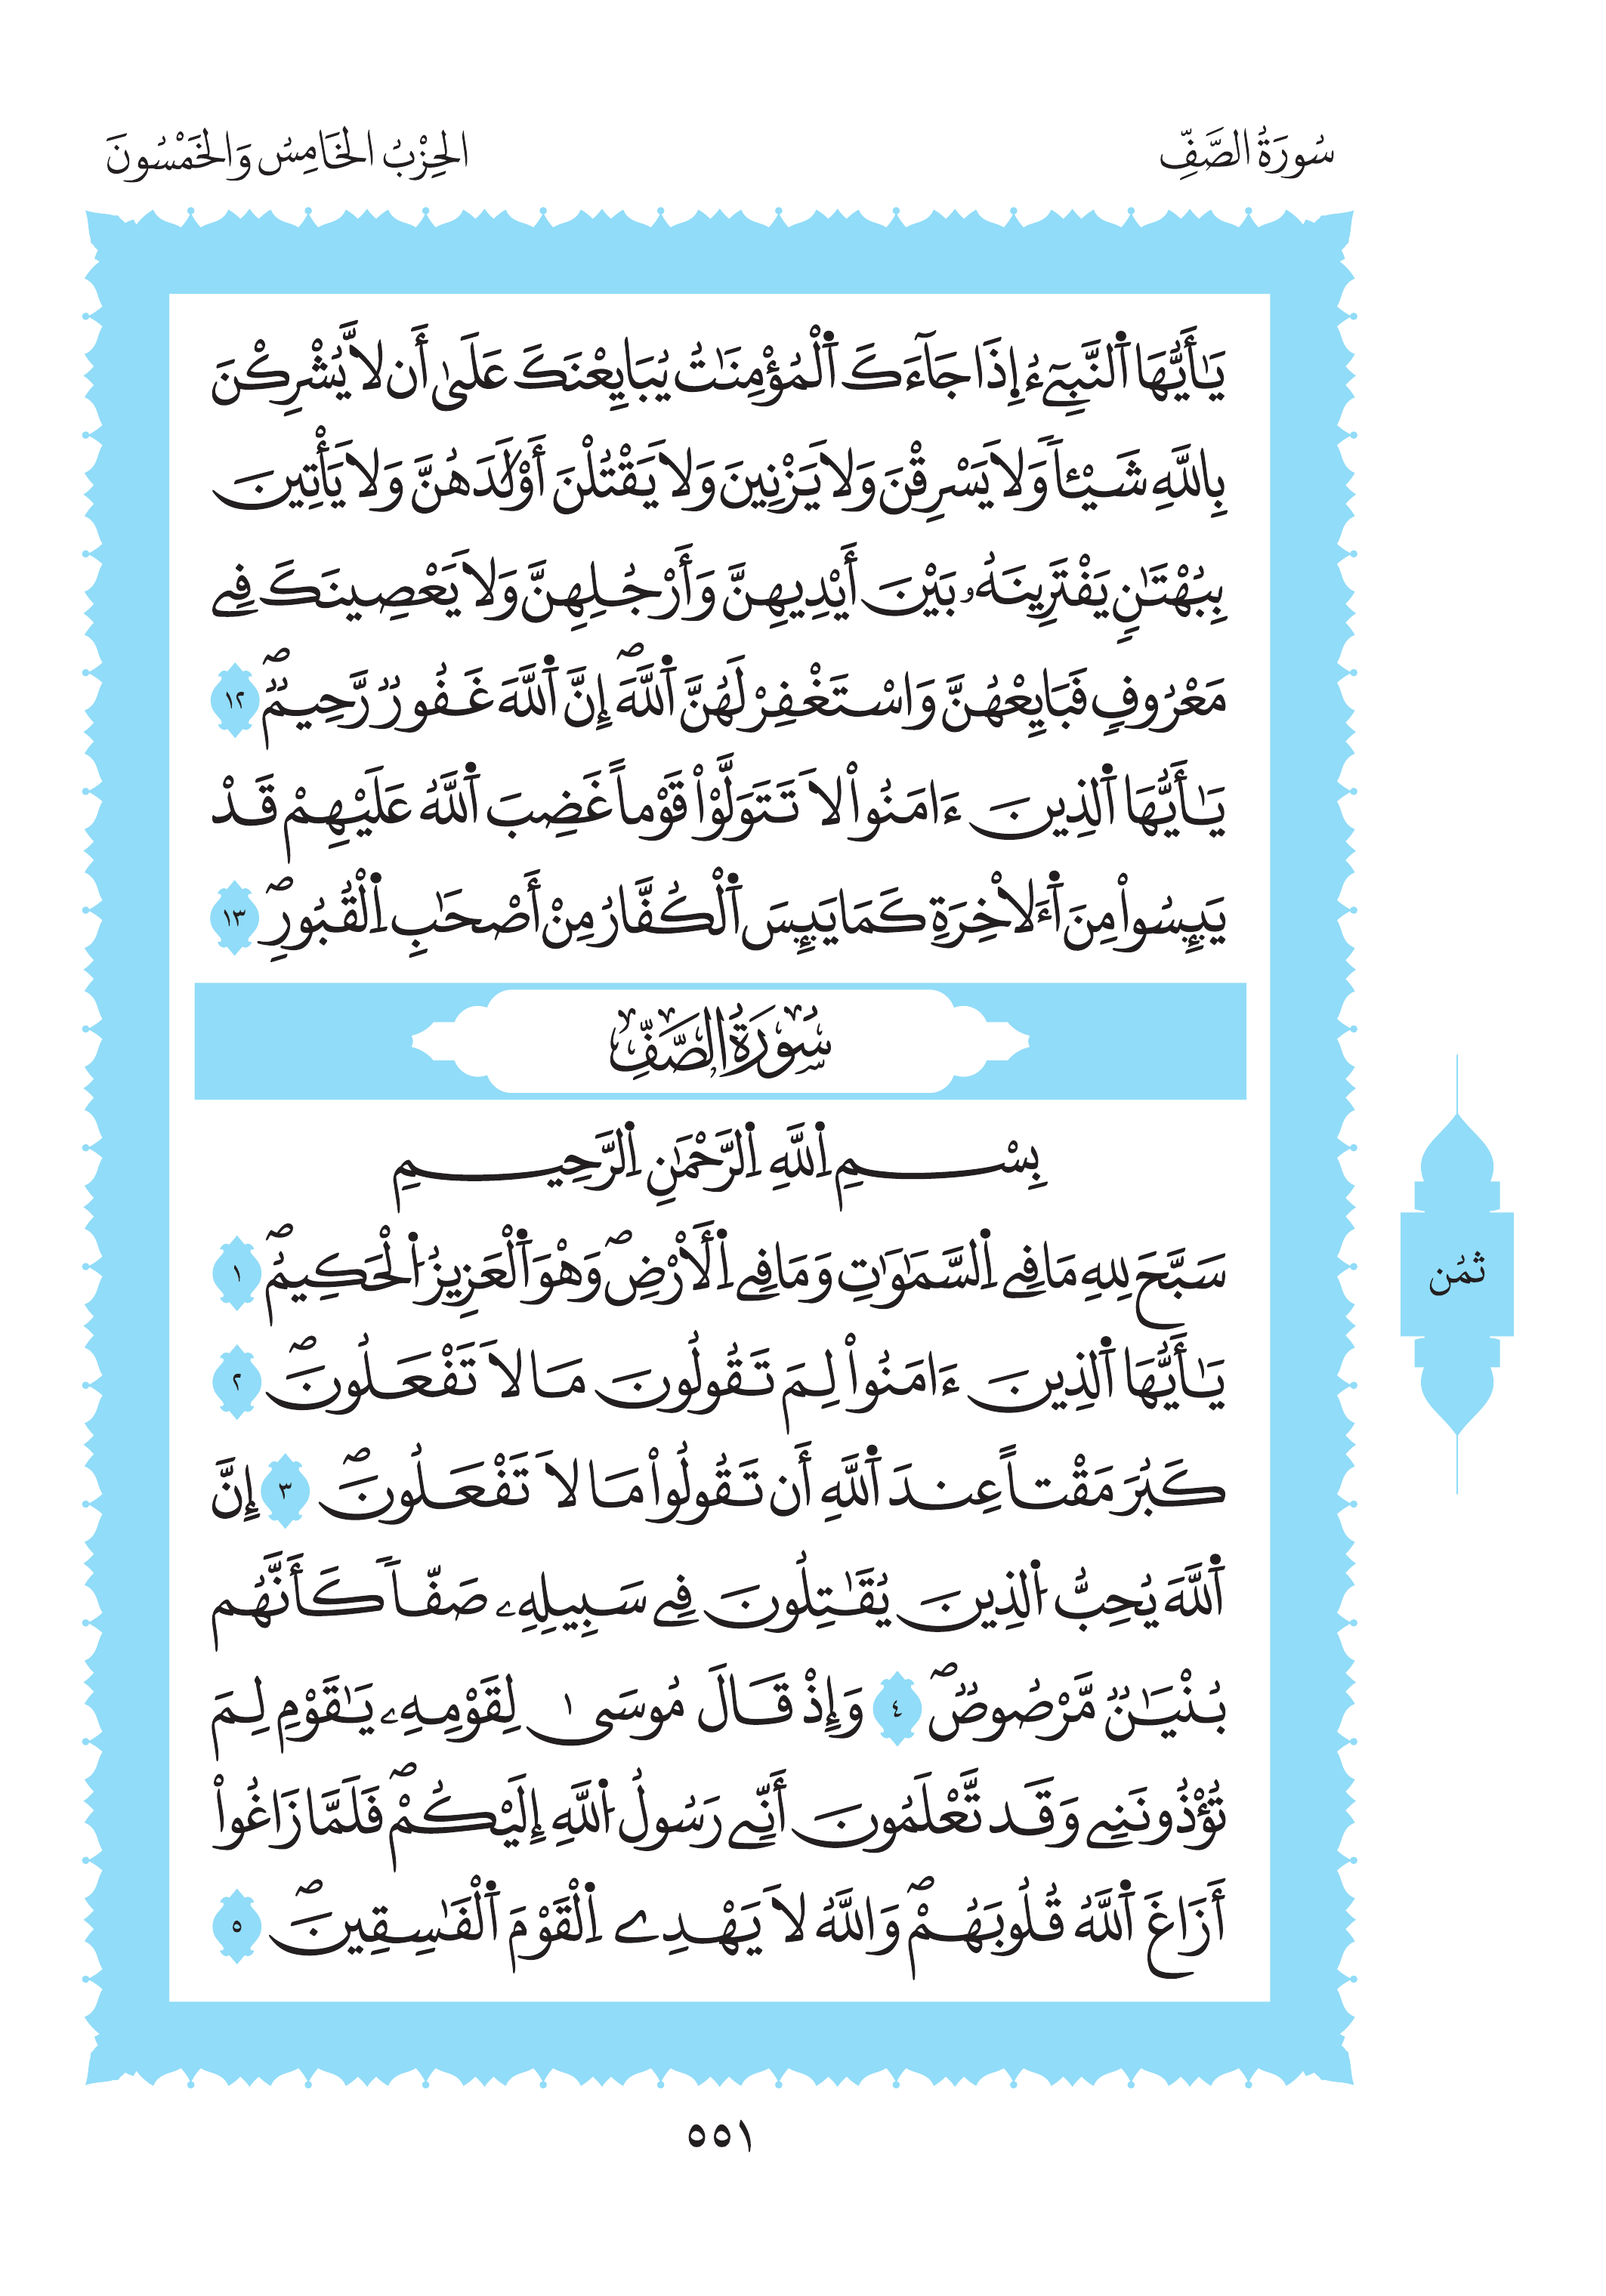 سُورَةُ الصَّفِّ
الحِزْبُ الخَامِسُ وَالخَمْسُونَ
يَٰأَيُّهَا اَ۬لنَّبِيٓءُ اِ۪ذَا جَآءَكَ اَ۬لْمُؤْمِنَٰتُ يُبَايِعْنَكَ عَلَىٰٓ أَن لَّا يُشْرِكْنَ
بِاللَّهِ شَيْـٔاٗ وَلَا يَسْرِقْنَ وَلَا يَزْنِينَ وَلَا يَقْتُلْنَ أَوْلَٰدَهُنَّ وَلَا يَأْتِينَ
بِبُهْتَٰنٖ يَفْتَرِينَهُۥ بَيْنَ أَيْدِيهِنَّ وَأَرْجُلِهِنَّ وَلَا يَعْصِينَكَ فِے
مَعْرُوفٖ فَبَايِعْهُنَّ وَاسْتَغْفِرْ لَهُنَّ اَ۬للَّهَۖ إِنَّ اَ۬للَّهَ غَفُورٞ رَّحِيمٞۖ ١٢
يَٰأَيُّهَا اَ۬لذِينَ ءَامَنُواْ لَا تَتَوَلَّوْاْ قَوْماً غَضِبَ اَ۬للَّهُ عَلَيْهِمْ قَدْ
يَئِسُواْ مِنَ اَ۬لَاخِرَةِ كَمَا يَئِسَ اَ۬لْكُفَّارُ مِنْ أَصْحَٰبِ اِ۬لْقُبُورِۖ ١٣
سُورَةُ الصَّفِّ
بِسْمِ اِ۬للَّهِ اِ۬لرَّحْمَٰنِ اِ۬لرَّحِيمِ
سَبَّحَ لِلهِ مَا فِے اِ۬لسَّمَٰوَٰتِ وَمَا فِے اِ۬لَأرْضِۖ وَهْوَ اَ۬لْعَزِيزُ اُ۬لْحَكِيمُۖ ١
ثمُن
يَٰأَيُّهَا اَ۬لذِينَ ءَامَنُواْ لِمَ تَقُولُونَ مَا لَا تَفْعَلُونَۖ ٢
كَبُرَ مَقْتاً عِندَ اَ۬للَّهِ أَن تَقُولُواْ مَا لَا تَفْعَلُونَۖ ٣ إِنَّ
اَ۬للَّهَ يُحِبُّ اُ۬لذِينَ يُقَٰتِلُونَ فِے سَبِيلِهِۦ صَفّاٗ كَأَنَّهُم
بُنْيَٰنٞ مَّرْصُوصٞۖ ٤ وَإِذْ قَالَ مُوسَىٰ لِقَوْمِهِۦ يَٰقَوْمِ لِمَ
تُؤْذُونَنِے وَقَد تَّعْلَمُونَ أَنِّے رَسُولُ اُ۬للَّهِ إِلَيْكُمْۖ فَلَمَّا زَاغُواْ
أَزَاغَ اَ۬للَّهُ قُلُوبَهُمْۖ وَاللَّهُ لَا يَهْدِے اِ۬لْقَوْمَ اَ۬لْفَٰسِقِينَۖ ٥
٥٥١